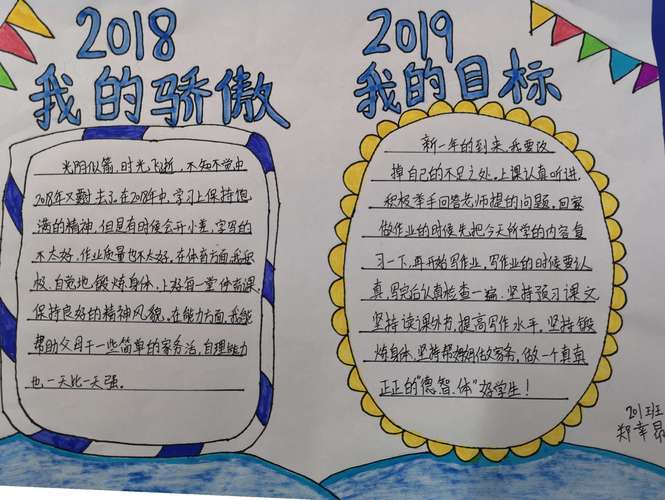 2018
我的骄傲
光阴似箭,时光飞逝,不知不觉中
2018年又离去了。在2018年中,学习上保持饱
满的精神,但是有时候会开小差,字写的
不太好,作业质量也不太好。在体育方面,我积
极、自觉地锻炼身体,上好每一堂体育课,
保持良好的精神风貌。在能力方面,我能
帮助父母干一些简单的家务活,自理能力
也一天比一天强。
2019
我的目标
新一年的到来,我要改
掉自己的不足之处。上课认真听讲,
积极举手回答老师提的问题。回家
做作业的时候先把今天所学的内容复
习一下,再开始写作业,写作业的时候要认
真,写完后认真检查一遍。坚持预习课文
坚持读课外书,提高写作水平。坚持锻
炼身体,坚持帮妈妈做家务,做一个真真
正正的“德、智、体”好学生!
201班
郑幸